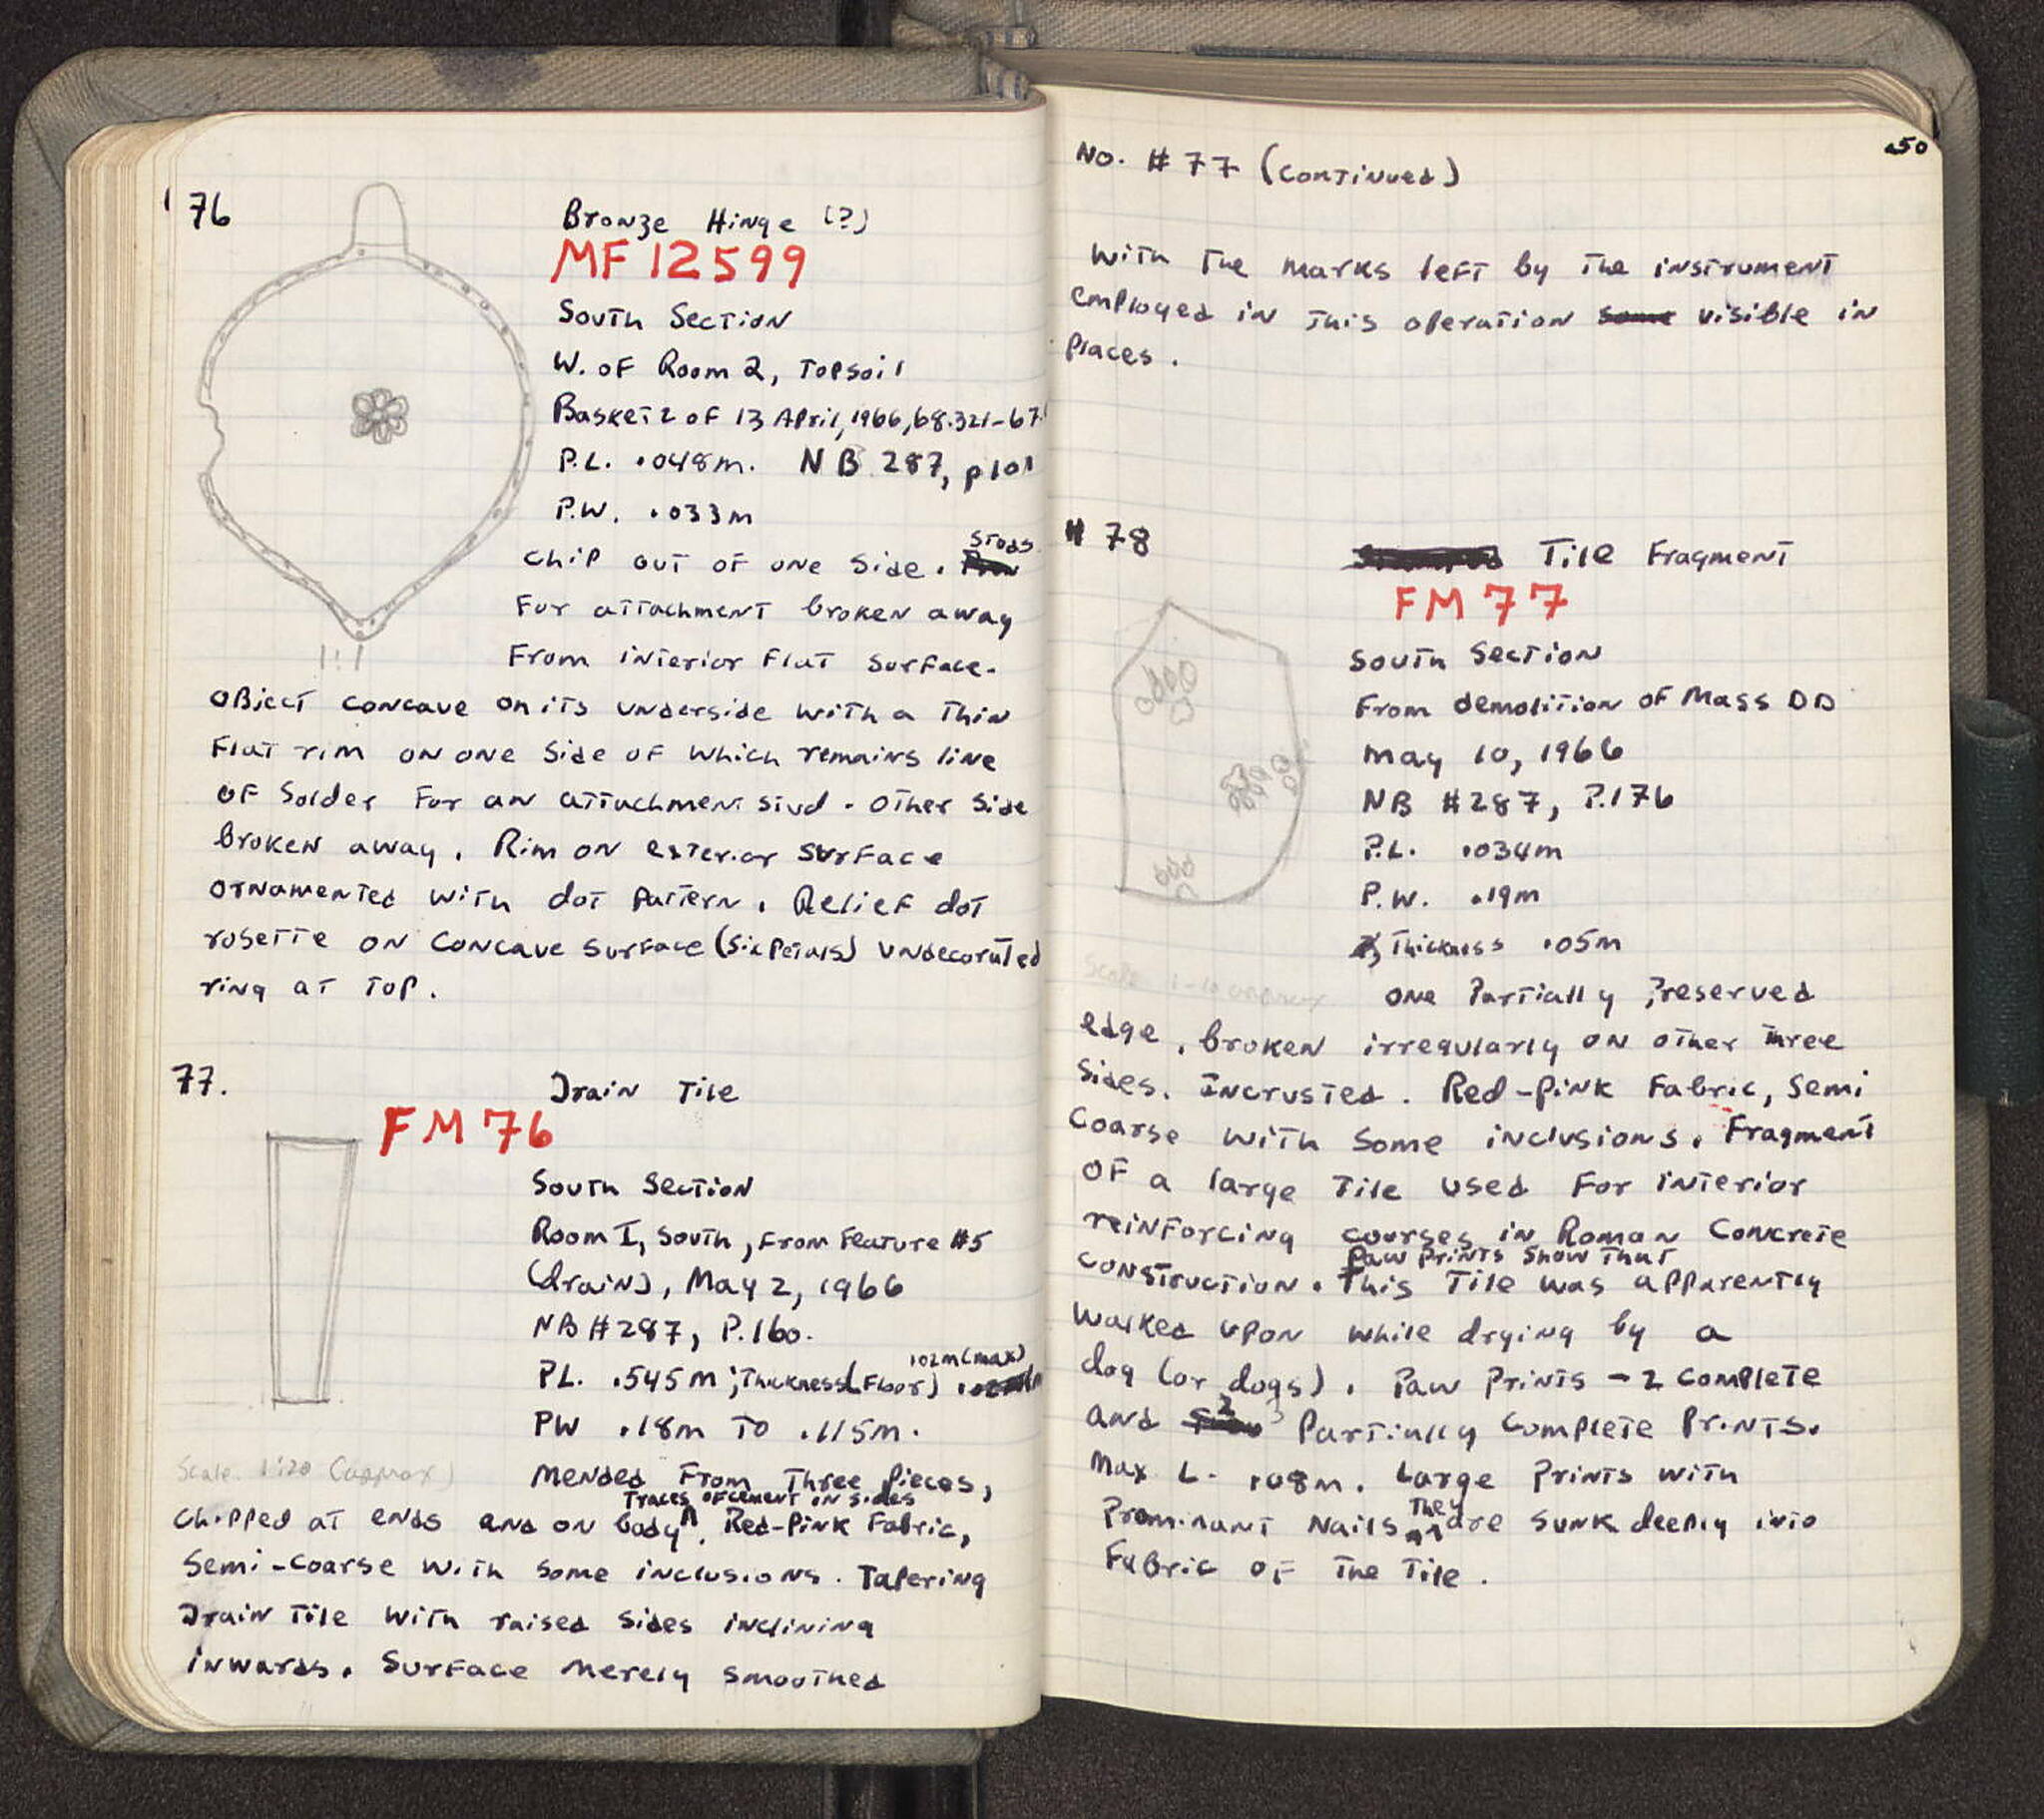 76
Bronze Hinge (?)
MF 12599
South Section
W. of Room 2, Topsoil
Basket 2 of 13 April, 1966, 68.321-67.
P.L. .048m. NB 287, p 101
P.W. .033m
Studs
Chip out of one side.
For attachment broken away
From interior flat surface.
1:1
Object concave on its underside with a thin
flat rim on one side of which remains line
of solder for an attachment stud. Other side
broken away. Rim on exterior surface
ornamented with dot pattern. Relief dot
rosette on concave surface (six petals) undecorated
ring at top.
77.
Drain Tile
FM 76
South Section
Room I, South, From Feature #5
(drain), May 2, 1966
NB #287, P.160.
.02m (max)
PL. .545m; Thickness (Floor)
PW .18m to .115m.
Scale. 1:20 (approx)
Mended from three pieces,
Traces of cement in sides
chipped at ends and on body. Red-Pink Fabric,
Semi-coarse with some inclusions. Tapering
Drain Tile with raised sides inclining
inwards. Surface merely smoothed
50
No. #77 (continued)
with the marks left by the instrument
employed in this operation some visible in
places.
# 78
Tile Fragment
FM 77
South Section
From demolition of Mass DD
May 10, 1966
NB #287, P.176
P.L. .034m
P.W. .19m
Thickness .05m
Scale 1-10 approx
one partially preserved
edge, broken irregularly on other three
sides. Incrusted. Red-pink Fabric, semi
coarse with some inclusions. Fragment
of a large tile used for interior
reinforcing courses in Roman Concrete
Paw prints show that
construction. This tile was apparently
walked upon while drying by a
dog (or dogs). Paw prints - 2 complete
2
and partially complete prints.
Max L. .08m. Large prints with
They
prominant nails are sunk deeply into
fabric of the tile.